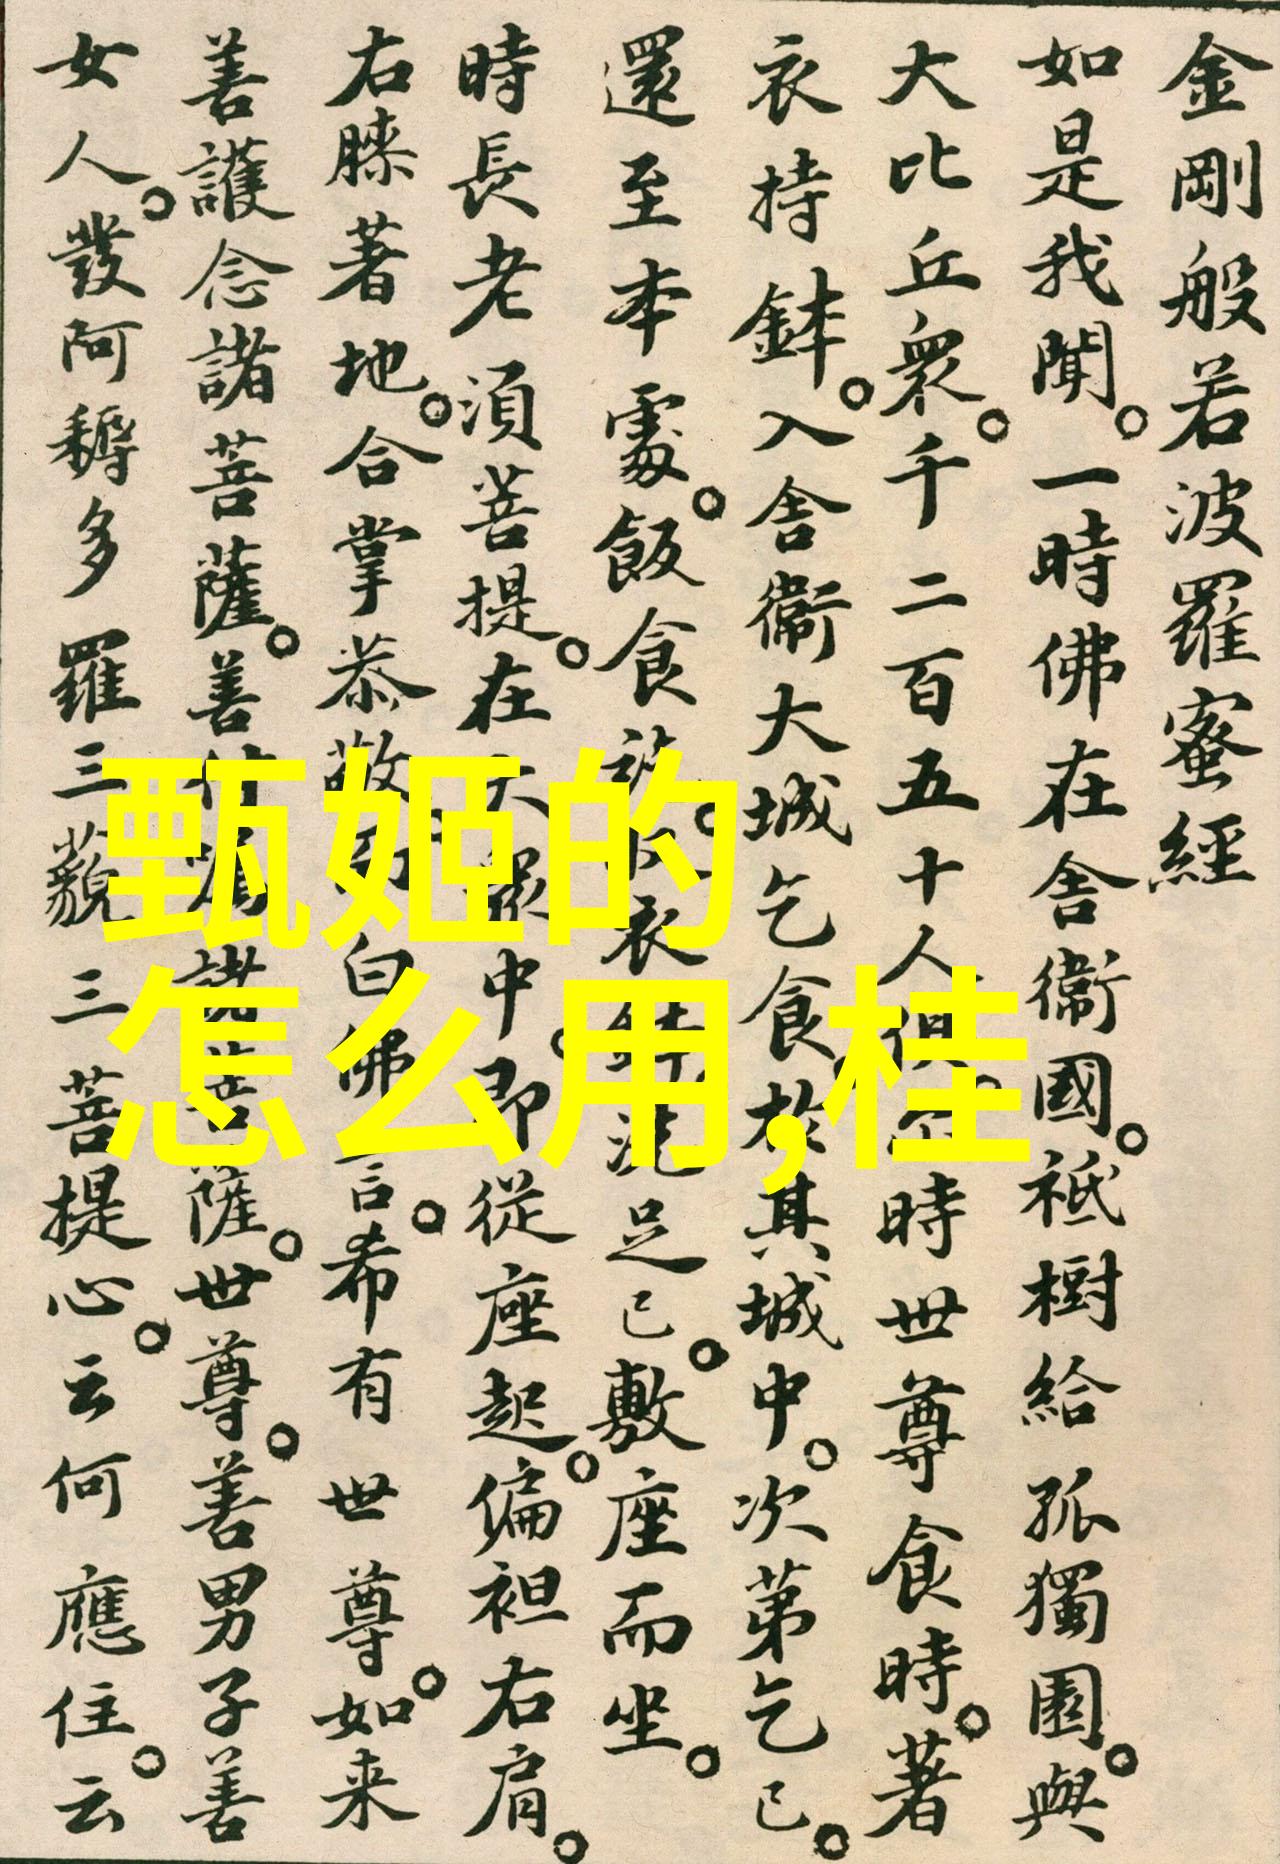 金剛般若波羅蜜經
如是我聞。一時佛在舍衞國。祇樹給孤獨園。與
大比丘衆。千二百五十人俱。尒時世尊食時。著
衣持鉢。入舍衞大城乞食。於其城中。次第乞已。
還至本處。飯食訖。收衣鉢。洗足已。敷座而坐。
時長老須菩提。在大衆中。即從座起。偏袒右肩。
右膝著地。合掌恭敬。而白佛言。希有世尊。如来
善護念諸菩薩。善付囑諸菩薩。世尊。善男子善
女人。發阿耨多羅三藐三菩提心。云何應住。云
甄姬的
怎么用,桂